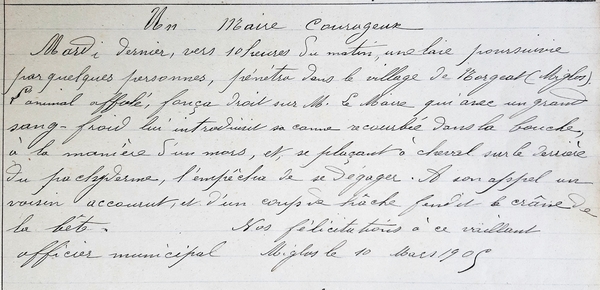 Un Maire Courageux
Mardi dernier, vers 10 heures du matin, une laie poursuivie
par quelques personnes, pénétra dans le village de Norgeat (Miglos).
L'animal affolé, fonça droit sur M. le Maire qui avec un grand
sang-froid lui introduisit sa canne recourbée dans la bouche,
à la manière d'un mors, et, se plaçant à cheval sur le derrière
du pachyderme, l'empêcha de se dégager. A son appel un
voisin accourut, et d'un coup de hâche fendit le crâne de
la bête. Nos félicitations à ce vaillant
officier municipal Miglos le 10 Mars 1905